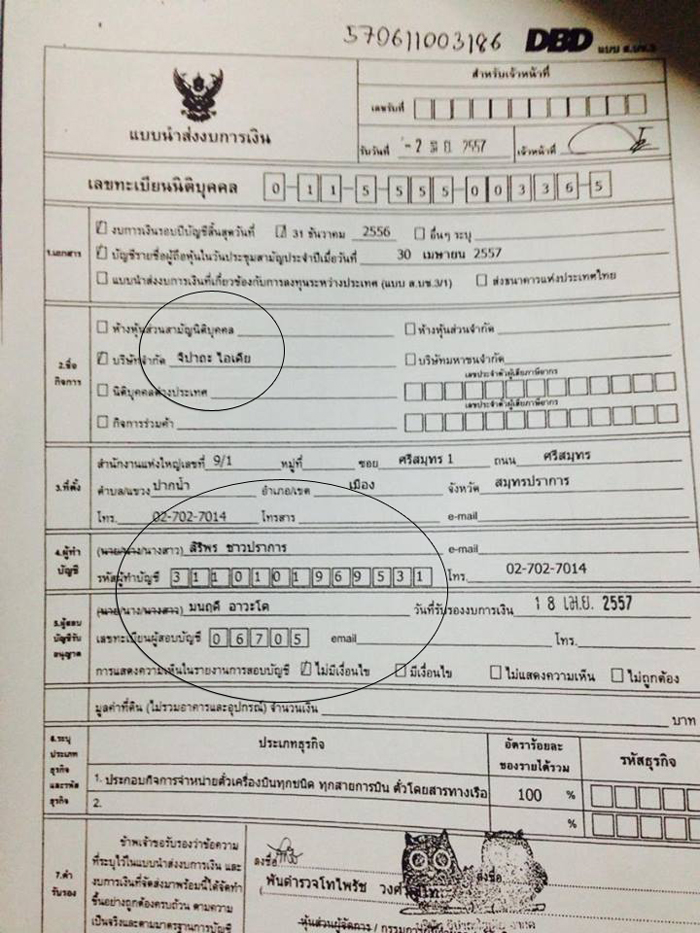 570611003186 DBD แบบ ส.บช.3
สำหรับเจ้าหน้าที่
เลขรับที่
แบบนำส่งงบการเงิน
รับวันที่ - 2 พ.ย. 2557 เจ้าหน้าที่
เลขทะเบียนนิติบุคคล 0-11-5-555-00336-5
1.เอกสาร
งบการเงินรอบปีบัญชีสิ้นสุดวันที่ 31 ธันวาคม 2556 อื่นๆ ระบุ
บัญชีรายชื่อผู้ถือหุ้นในวันประชุมสามัญประจำปีเมื่อวันที่ 30 เมษายน 2557
แบบนำส่งงบการเงินที่เกี่ยวข้องกับการลงทุนระหว่างประเทศ (แบบ ส.บช.3/1) ส่งธนาคารแห่งประเทศไทย
2.ชื่อกิจการ
ห้างหุ้นส่วนสามัญนิติบุคคล ห้างหุ้นส่วนจำกัด
บริษัทจำกัด จิปาถะ ไอเดีย บริษัทมหาชนจำกัด
เลขประจำตัวผู้เสียภาษีอากร
นิติบุคคลต่างประเทศ
เลขประจำตัวผู้เสียภาษีอากร
กิจการร่วมค้า
3.ที่ตั้ง
สำนักงานแห่งใหญ่เลขที่ 9/1 หมู่ที่ ซอย ศรีสมุทร 1 ถนน ศรีสมุทร
ตำบล/แขวง ปากน้ำ อำเภอ/เขต เมือง จังหวัด สมุทรปราการ
โทร. 02-702-7014 โทรสาร e-mail
4.ผู้ทำบัญชี
(นาย/นาง/นางสาว) สิริพร ชาวปราการ e-mail
รหัสผู้ทำบัญชี 3110101969531 โทร. 02-702-7014
5.ผู้สอบบัญชีรับอนุญาต
(นาย/นาง/นางสาว) มนฤดี อาวะโต วันที่รับรองงบการเงิน 18 เม.ย. 2557
เลขทะเบียนผู้สอบบัญชี 06705 email โทร.
การแสดงความเห็นในรายงานการสอบบัญชี ไม่มีเงื่อนไข มีเงื่อนไข ไม่แสดงความเห็น ไม่ถูกต้อง
มูลค่าที่ดิน (ไม่รวมอาคารและอุปกรณ์) จำนวนเงิน บาท
6.ระบุประเภทธุรกิจและรหัสธุรกิจ
ประเภทธุรกิจ อัตราร้อยละของรายได้รวม รหัสธุรกิจ
1. ประกอบกิจการจำหน่ายตั๋วเครื่องบินทุกชนิด ทุกสายการบิน ตั๋วโดยสารทางเรือ 100 %
2. %
7.คำรับรอง
ข้าพเจ้าขอรับรองว่าข้อความ
ที่ระบุไว้ในแบบนำส่งงบการเงิน และ
งบการเงินที่จัดส่งมาพร้อมนี้ได้จัดทำ
ขึ้นอย่างถูกต้องครบถ้วน ตามความ
เป็นจริงและตามมาตรฐานการบัญชี
ลงชื่อ ลงชื่อ
(พันตำรวจโทไพรัช
หุ้นส่วนผู้จัดการ / กรรมการ